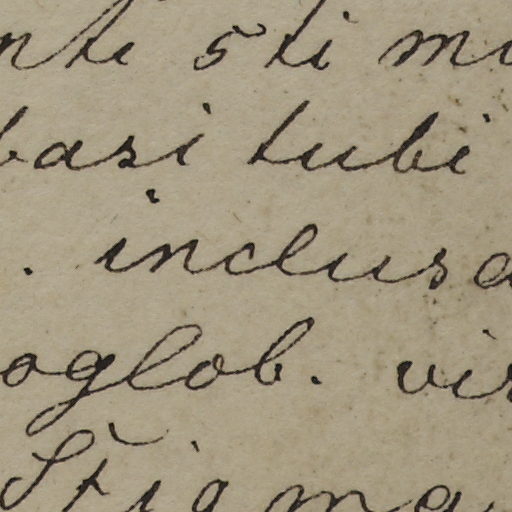 nte 5ti mi
basi tubi
. inclusa
oglob. vir
Stigma